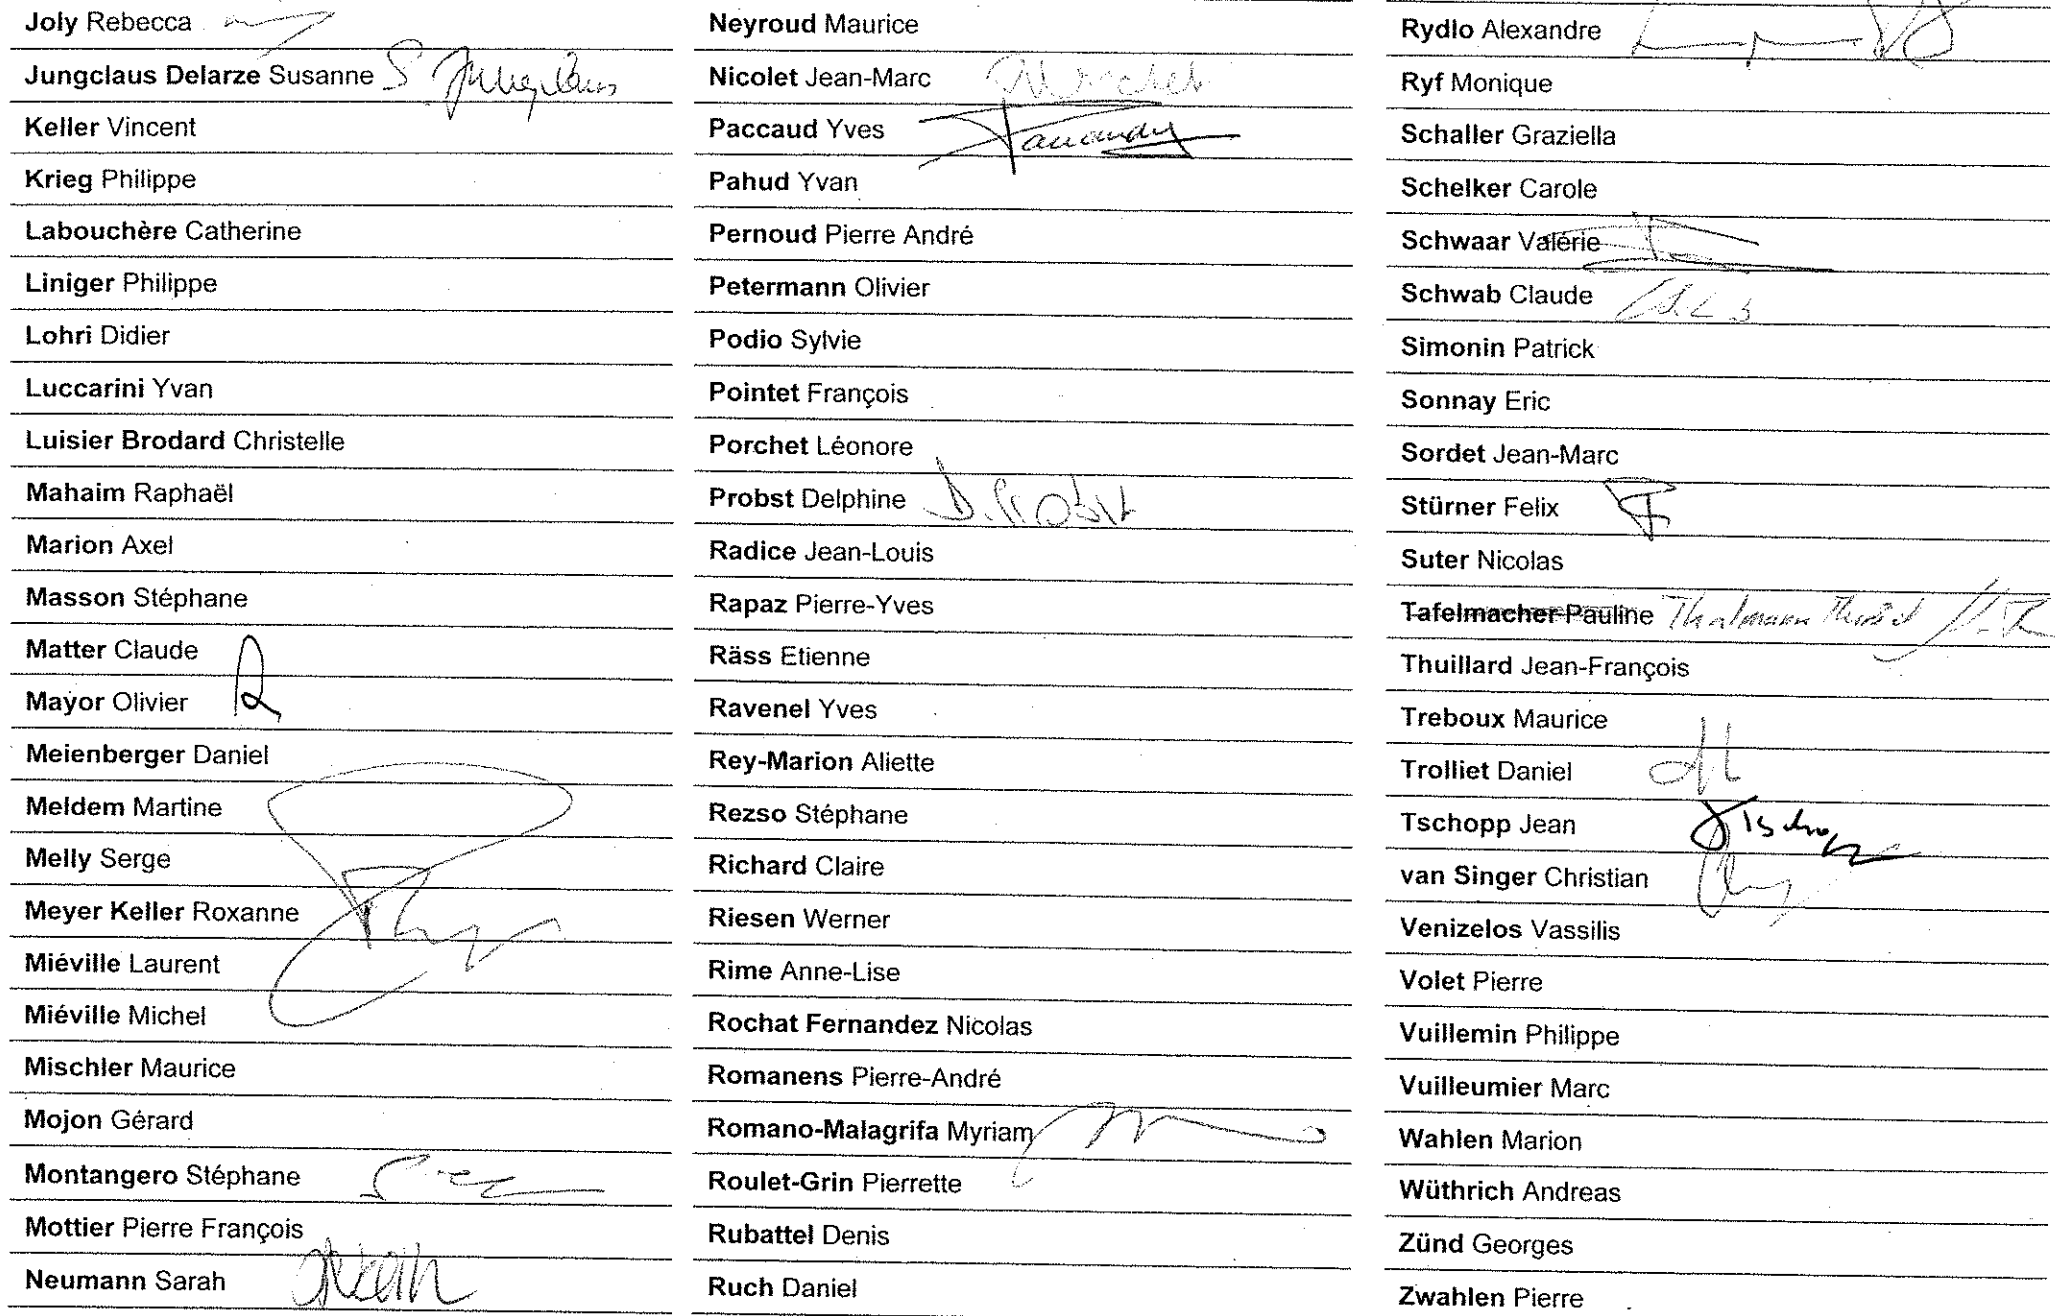 Joly Rebecca
Jungclaus Delarze Susanne S. Jungclaus
Keller Vincent
Krieg Philippe
Labouchère Catherine
Liniger Philippe
Lohri Didier
Luccarini Yvan
Luisier Brodard Christelle
Mahaim Raphaël
Marion Axel
Masson Stéphane
Matter Claude
Mayor Olivier
Meienberger Daniel
Meldem Martine
Melly Serge
Meyer Keller Roxanne
Miéville Laurent
Miéville Michel
Mischler Maurice
Mojon Gérard
Montangero Stéphane
Mottier Pierre François
Neumann Sarah
Neyroud Maurice
Nicolet Jean-Marc
Paccaud Yves
Pahud Yvan
Pernoud Pierre André
Petermann Olivier
Podio Sylvie
Pointet François
Porchet Léonore
Probst Delphine D. Probst
Radice Jean-Louis
Rapaz Pierre-Yves
Räss Etienne
Ravenel Yves
Rey-Marion Aliette
Rezso Stéphane
Richard Claire
Riesen Werner
Rime Anne-Lise
Rochat Fernandez Nicolas
Romanens Pierre-André
Romano-Malagrifa Myriam
Roulet-Grin Pierrette
Rubattel Denis
Ruch Daniel
Rydlo Alexandre
Ryf Monique
Schaller Graziella
Schelker Carole
Schwaar Valérie
Schwab Claude
Simonin Patrick
Sonnay Eric
Sordet Jean-Marc
Stürner Felix
Suter Nicolas
Tafelmacher Pauline Thalmann
Thuillard Jean-François
Treboux Maurice
Trolliet Daniel
Tschopp Jean Tschopp
van Singer Christian
Venizelos Vassilis
Volet Pierre
Vuillemin Philippe
Vuilleumier Marc
Wahlen Marion
Wüthrich Andreas
Zünd Georges
Zwahlen Pierre